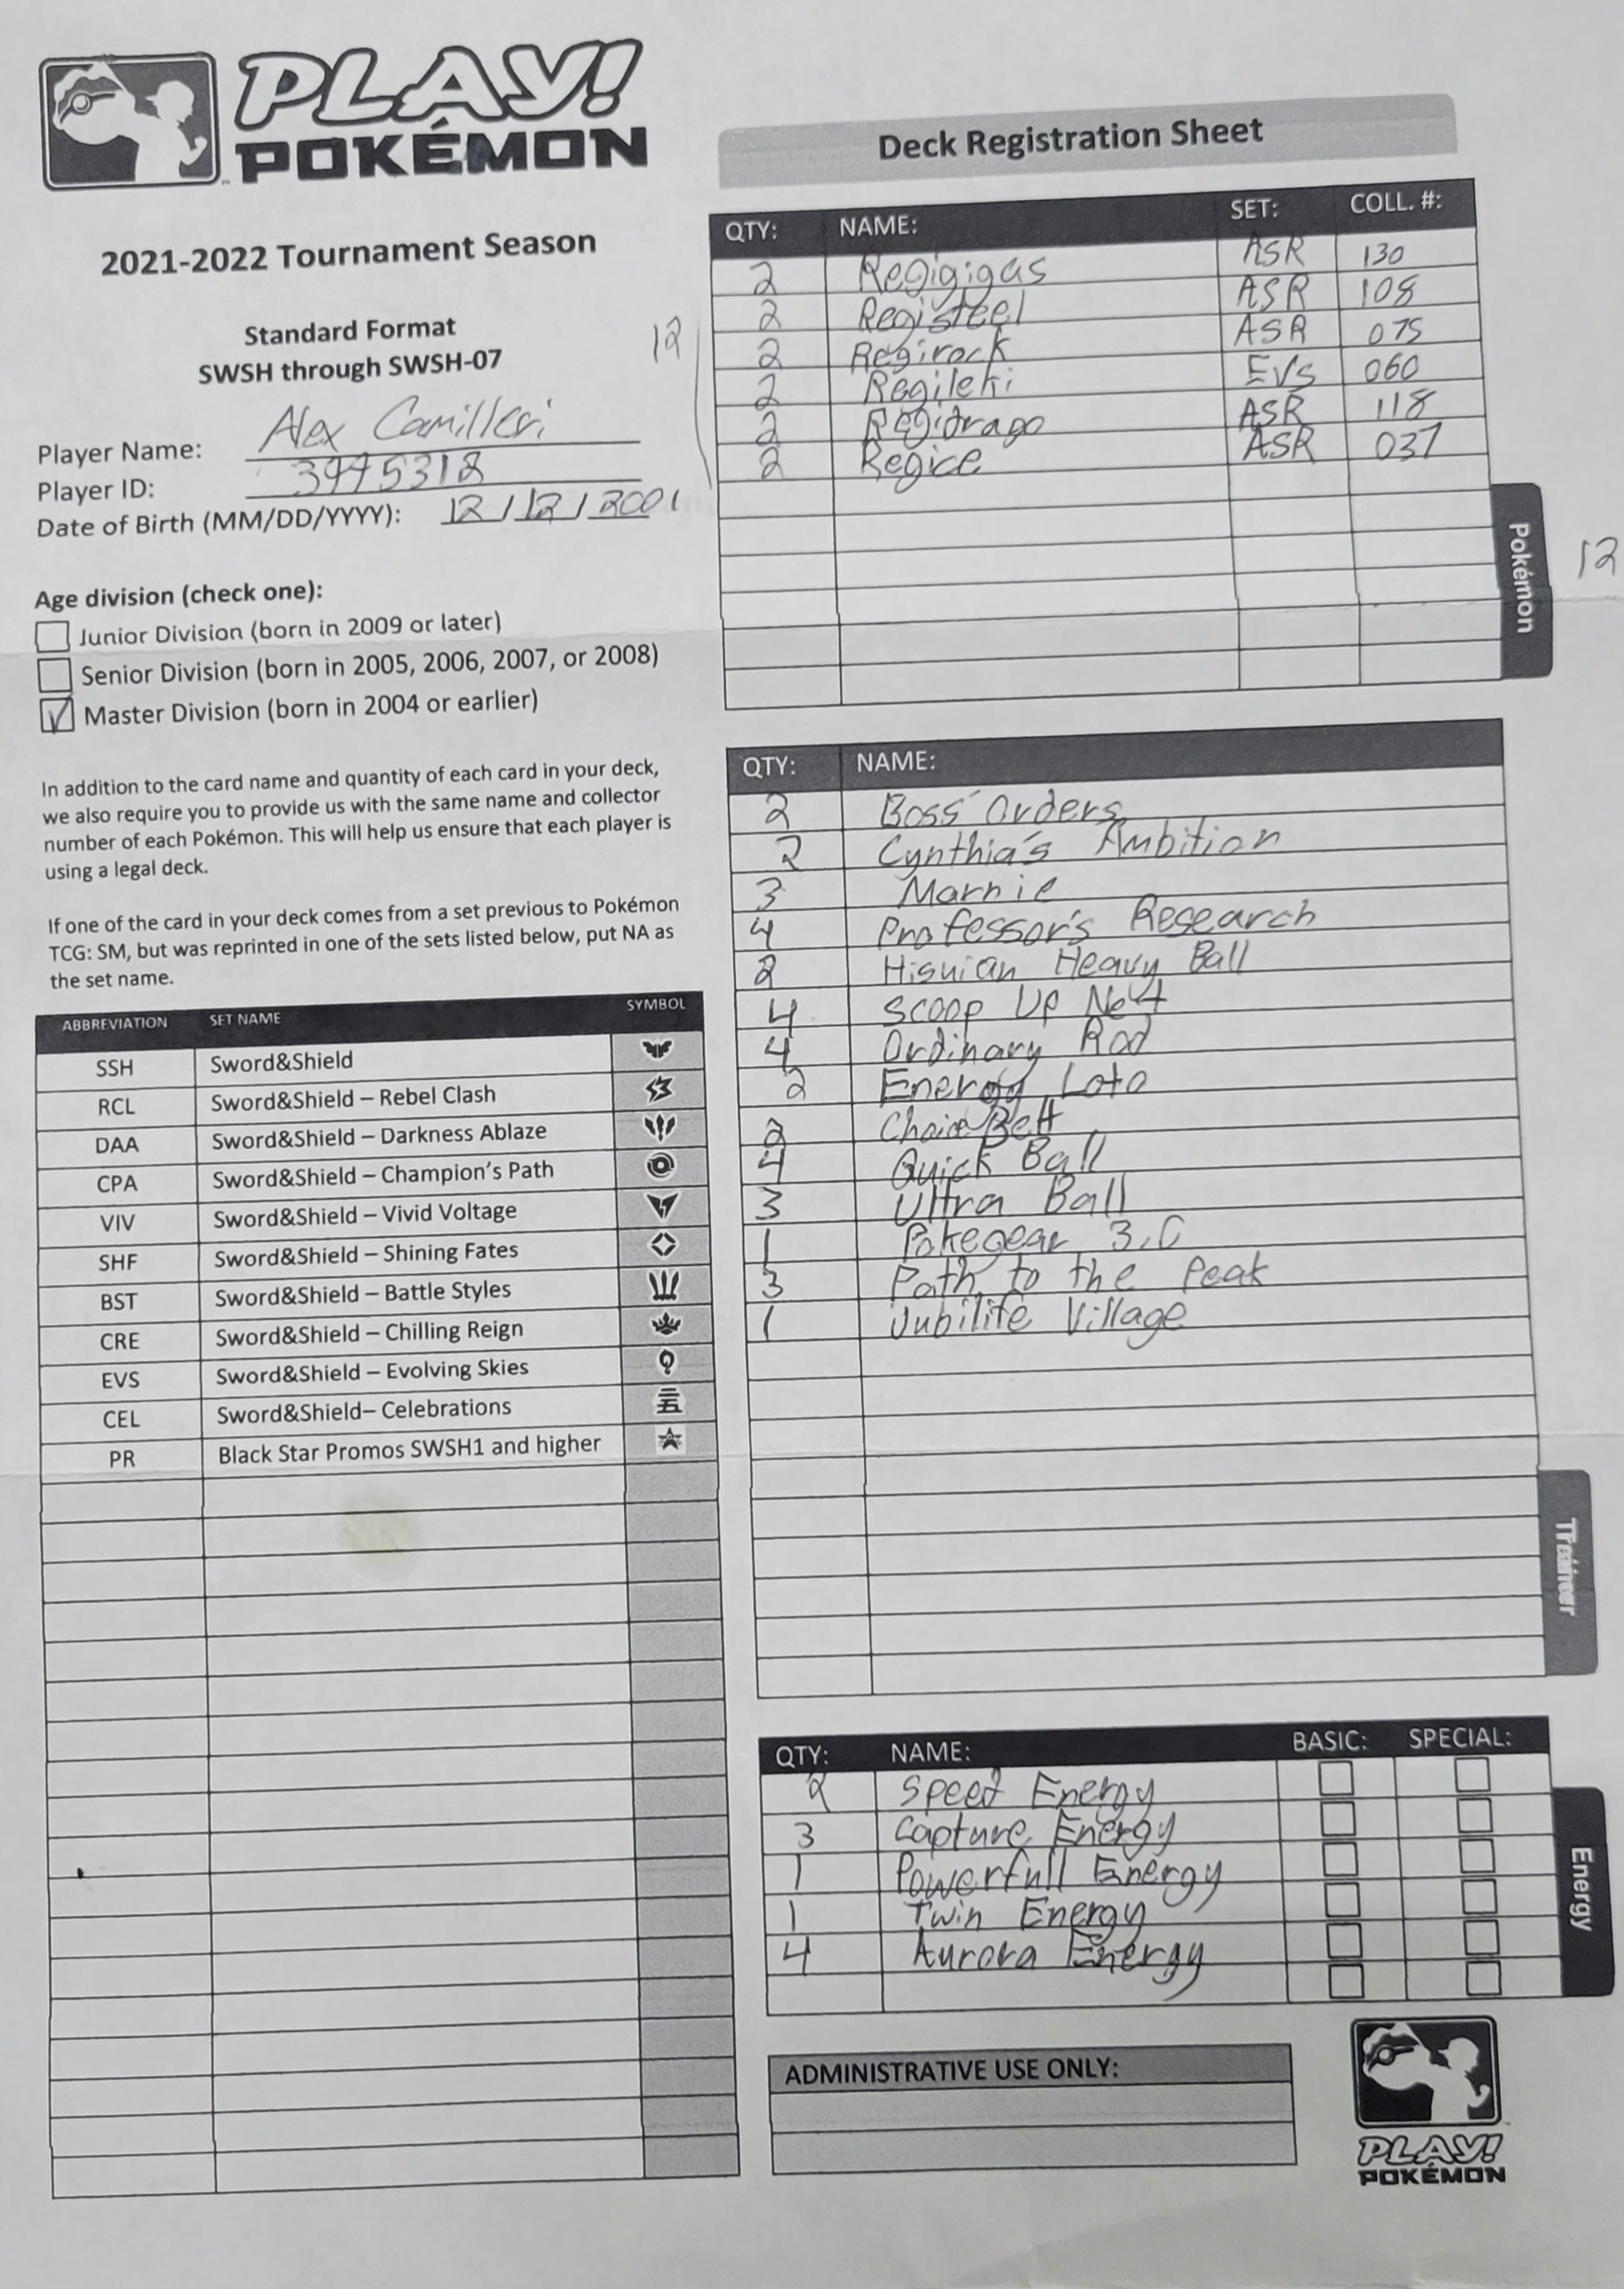 PLAY!
POKÉMON
2021-2022 Tournament Season
Standard Format
SWSH through SWSH-07
Player Name: Alex Camilleri
Player ID: 3975318
Date of Birth (MM/DD/YYYY): 12/12/2001
Age division (check one):
Junior Division (born in 2009 or later)
Senior Division (born in 2005, 2006, 2007, or 2008)
Master Division (born in 2004 or earlier)
In addition to the card name and quantity of each card in your deck,
we also require you to provide us with the same name and collector
number of each Pokémon. This will help us ensure that each player is
using a legal deck.
If one of the card in your deck comes from a set previous to Pokémon
TCG: SM, but was reprinted in one of the sets listed below, put NA as
the set name.
ABBREVIATION SET NAME SYMBOL
SSH Sword&Shield
RCL Sword&Shield – Rebel Clash
DAA Sword&Shield – Darkness Ablaze
CPA Sword&Shield – Champion's Path
VIV Sword&Shield – Vivid Voltage
SHF Sword&Shield – Shining Fates
BST Sword&Shield – Battle Styles
CRE Sword&Shield – Chilling Reign
EVS Sword&Shield – Evolving Skies
CEL Sword&Shield– Celebrations
PR Black Star Promos SWSH1 and higher
Deck Registration Sheet
QTY: NAME: SET: COLL. #:
2 Regigigas ASR 130
2 Registeel ASR 108
12
2 Regirock ASR 075
2 Regileki EVS 060
2 Regidrago ASR 118
2 Regice ASR 037
Pokémon
12
QTY: NAME:
2 Boss' Orders
2 Cynthia's Ambition
3 Marnie
4 Professor's Research
2 Hisuian Heavy Ball
4 Scoop Up Net
4 Ordinary Rod
2 Energy Loto
2 Choice Belt
4 Quick Ball
3 Ultra Ball
1 Pokegear 3.0
3 Path to the Peak
1 Jubilife Village
Trainer
QTY: NAME: BASIC: SPECIAL:
2 Speed Energy
3 Capture Energy
1 Powerfull Energy
1 Twin Energy
4 Aurora Energy
Energy
ADMINISTRATIVE USE ONLY:
PLAY!
POKÉMON